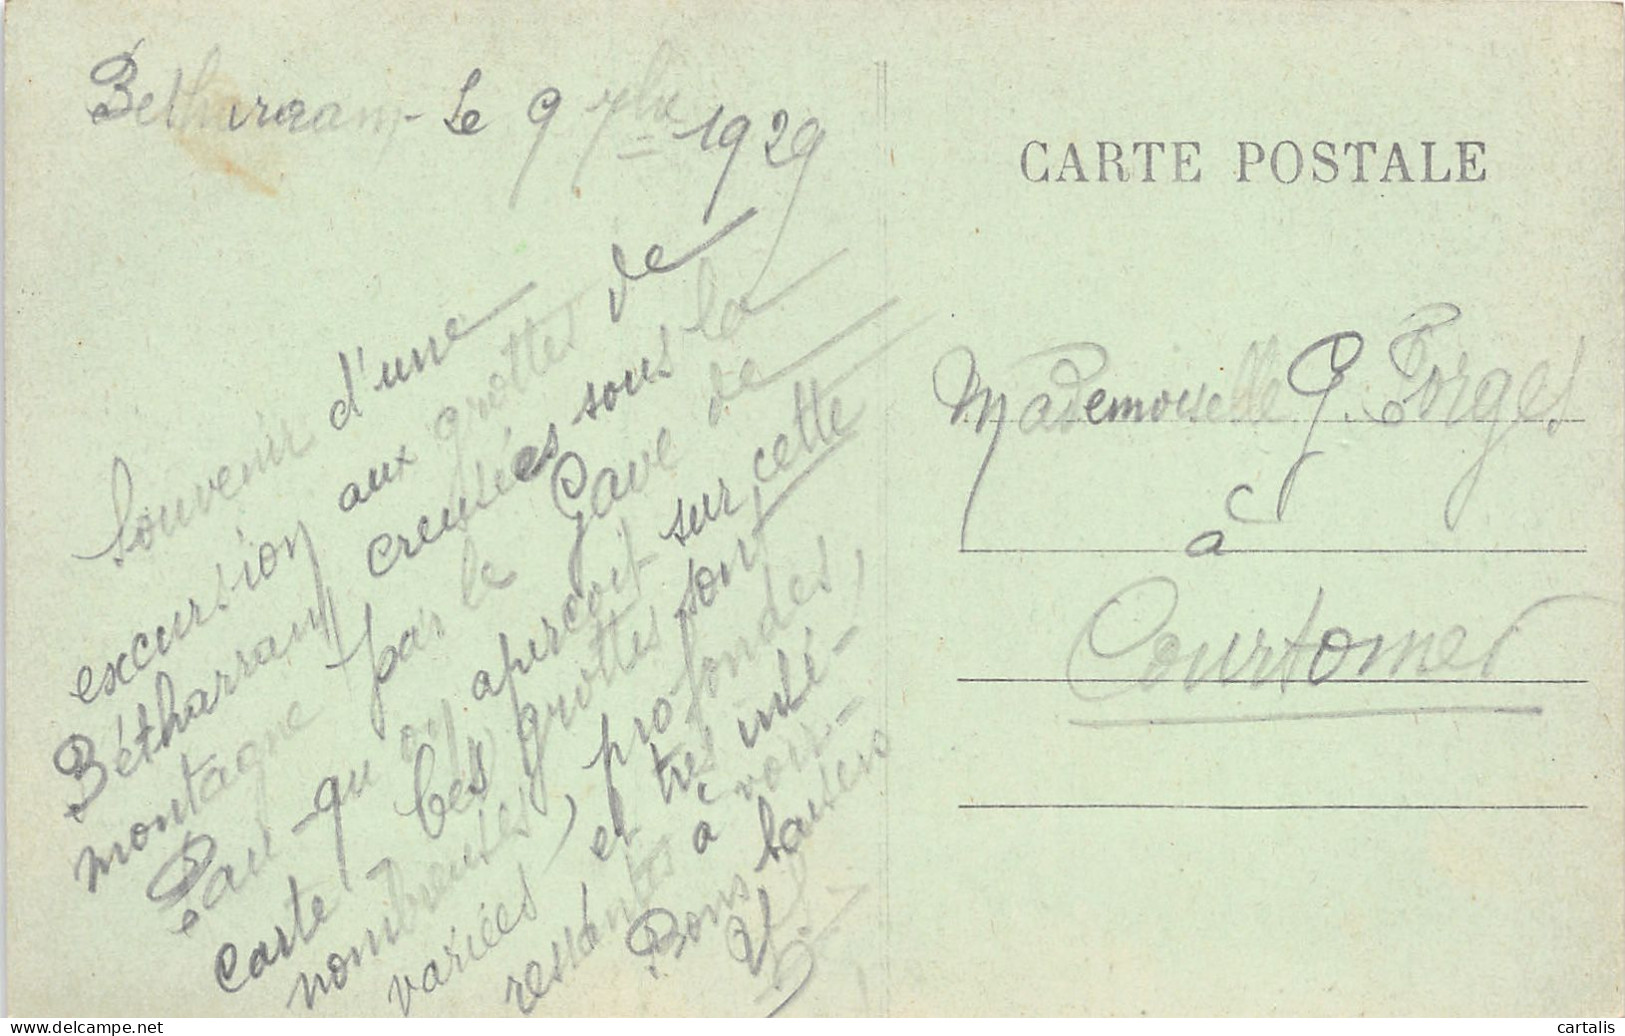 Betharram - Le 9 7bre 1929
Souvenir d'une
excursion aux grottes de
Bétharram creusées sous la
montagne par le Gave de
Pau - qu'on aperçoit sur cette
carte - Ces grottes sont
nombreuses, profondes,
variées et très inté-
ressantes à voir -
Bons baisers
CARTE POSTALE
Mademoiselle G. Forges
à
Courtomer
delcampe.net
cartalis